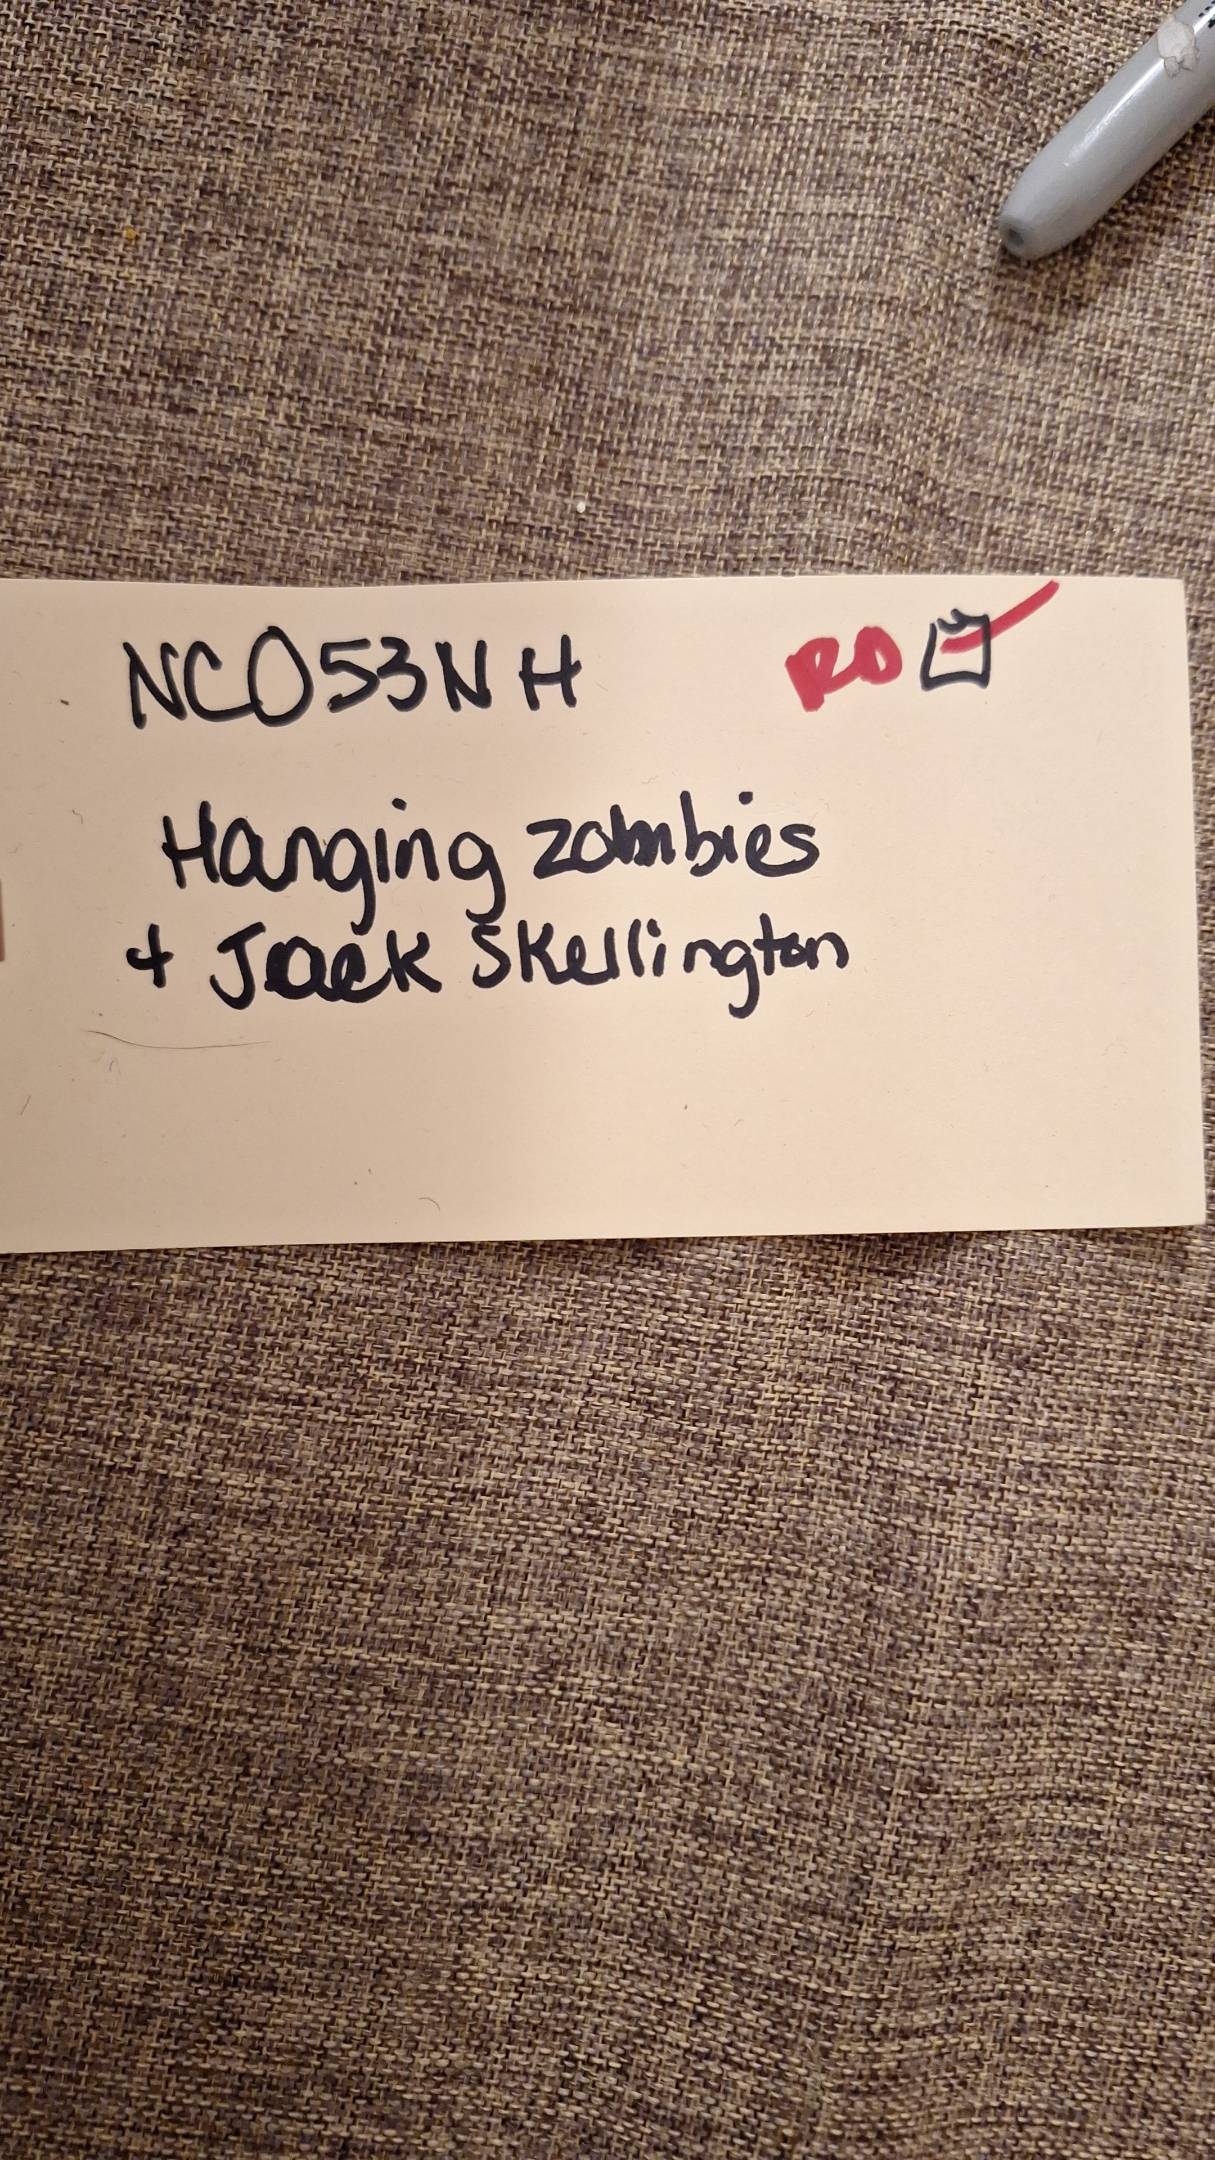 NC053NH RD
Hanging zombies
+ Jack Skellington